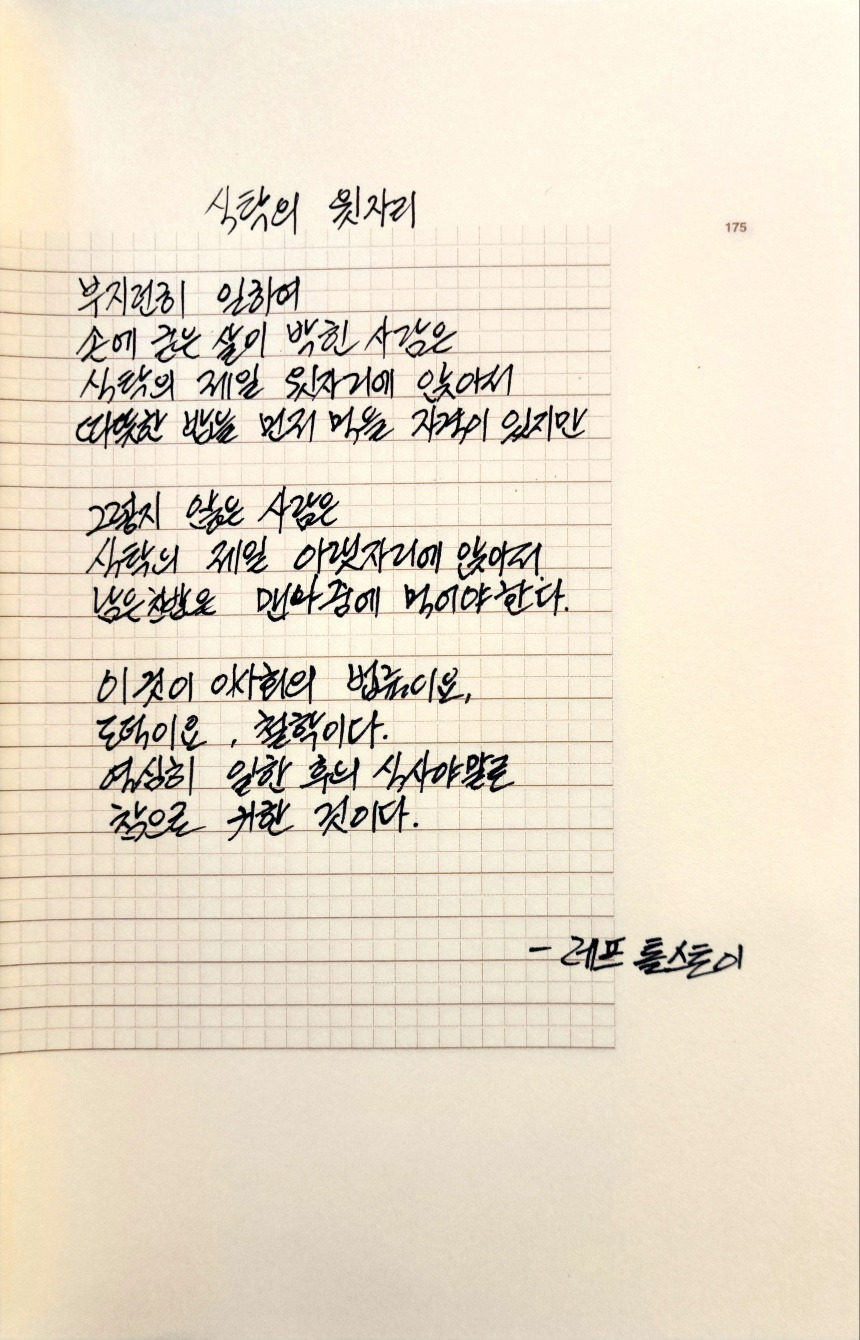 식탁의 윗자리
175
부지런히 일하여
손에 굳은 살이 박힌 사람은
식탁의 제일 윗자리에 앉아서
따뜻한 밥을 먼저 먹을 자격이 있지만
그렇지 않은 사람은
식탁의 제일 아랫자리에 앉아서
남은 찬밥을 맨 나중에 먹어야 한다.
이것이 이 사회의 법규이요,
도덕이요, 철학이다.
열심히 일한 후의 식사야말로
참으로 귀한 것이다.
- 레프 톨스토이